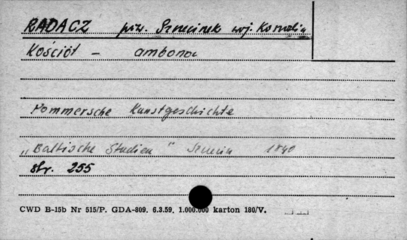 RADACZ pow. Szczecinek woj. Koszalin
Kościół - ambona
Pommersche Kunstgeschichte
„Baltische Studien" Szczecin 1840
str. 255
CWD B-15b Nr 515/P. GDA-809. 6.3.59. 1.000.000 karton 180/V.